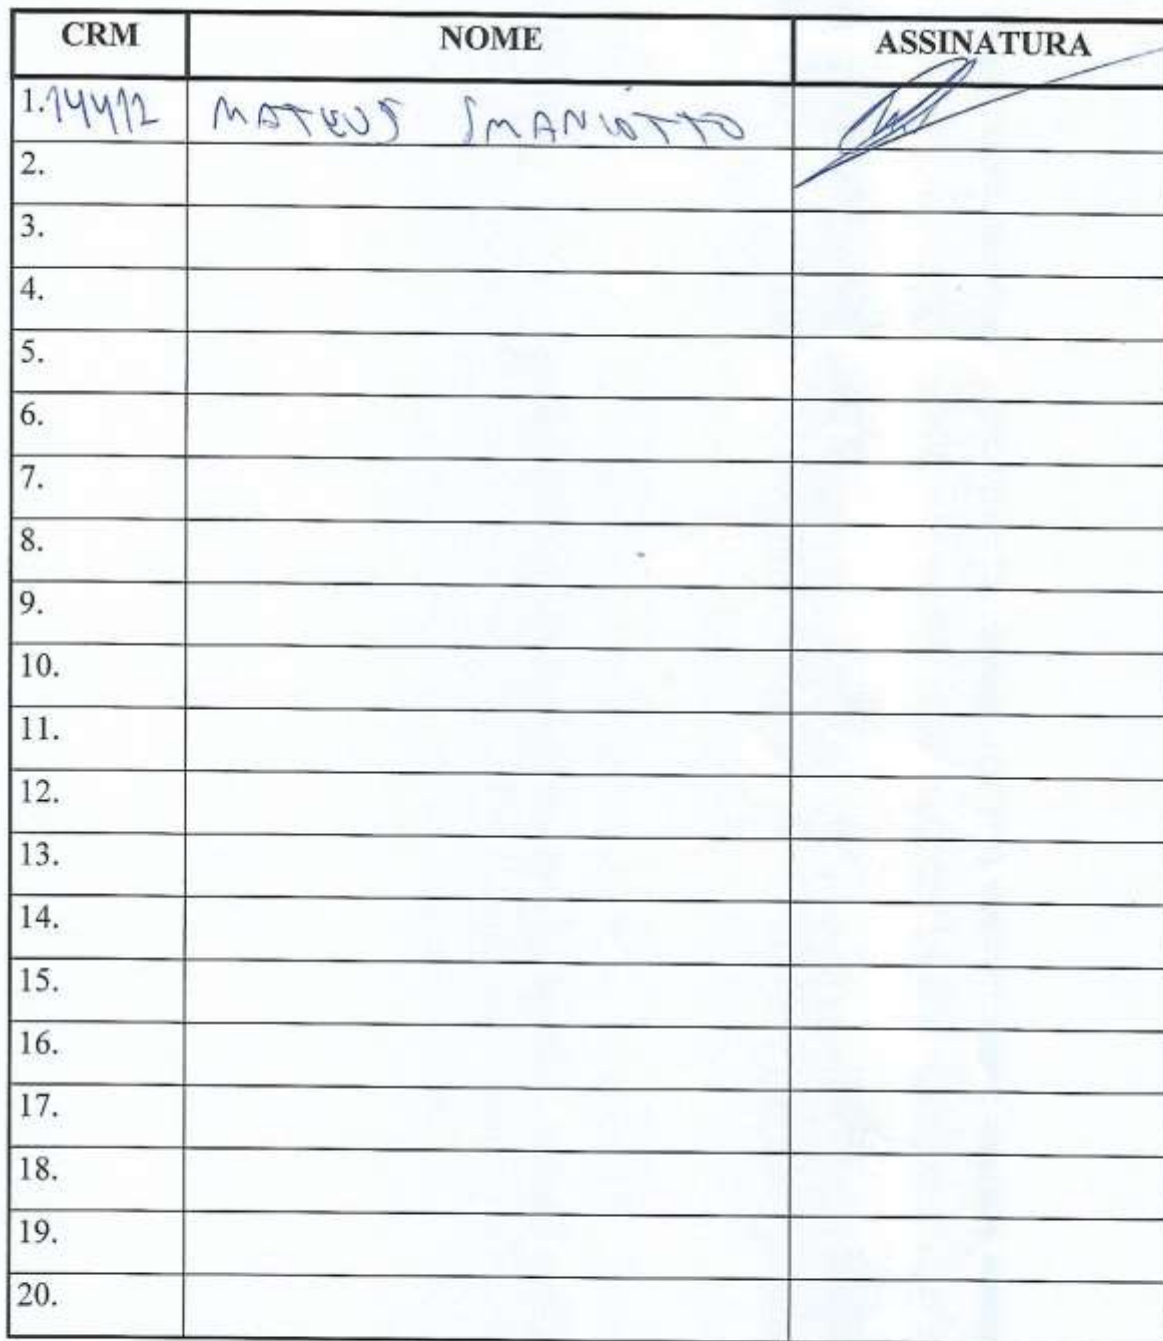 CRM NOME ASSINATURA
1. 14412 MATEUS SMANIOTTO
2.
3.
4.
5.
6.
7.
8.
9.
10.
11.
12.
13.
14.
15.
16.
17.
18.
19.
20.